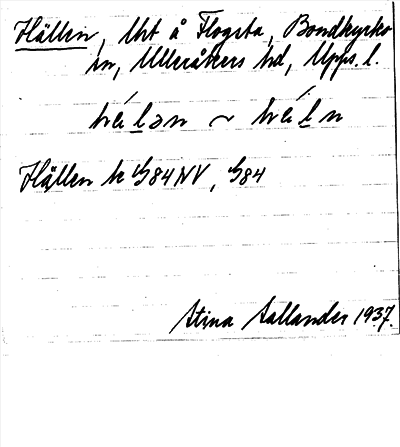 Hällen, Urt å Flogsta, Bondkyrko
sn, Ulleråkers hd, Upps. l.
hä́lən ~ hä́ln
Hällen k G84NV, G84
Stina Sallander 1937.